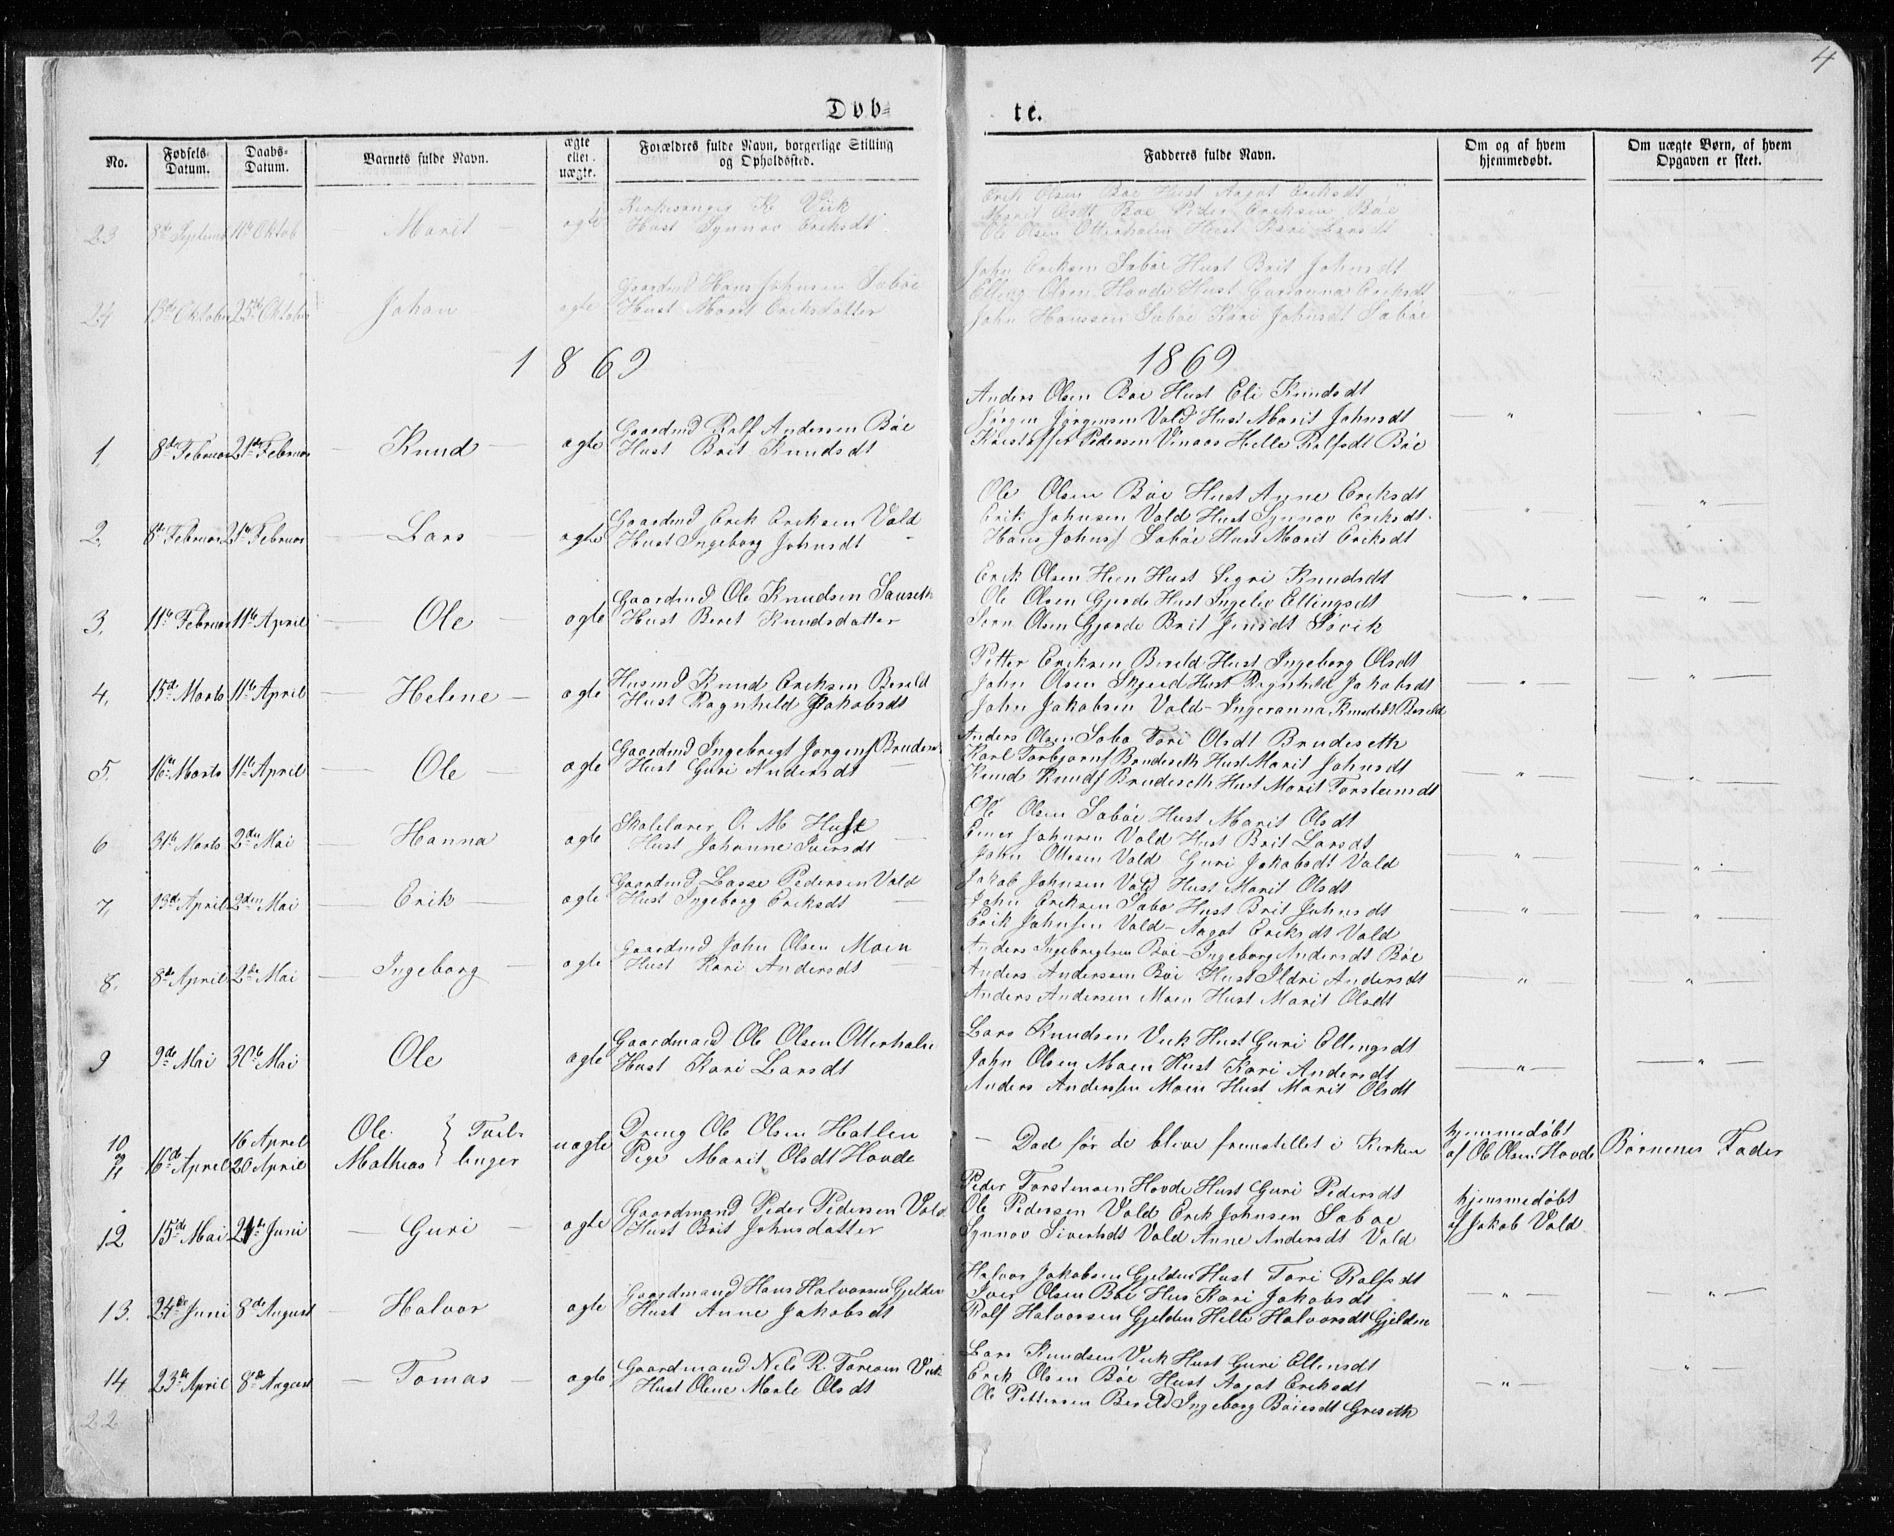 4
Døb-
te.
No.
Fødsels-
Datum.
Daabs-
Datum.
Barnets fulde Navn.
ægte
eller
uægte.
Forældres fulde Navn, borgerlige Stilling
og Opholdssted.
Fadderes fulde Navn.
Om og af hvem
hjemmedøbt.
Om uægte Børn, af hvem
Opgaven er skeet.
Kirkesanger K. Viik
Hust Synnøv Eriksdt
23 8de Septemb 11te Oktob Marit ægte
Erik Olsen Bøe Hust Aagot Eriksdt
Marit Bøe Peder Eriksen Bøe
Ole Olsen Otterhalen Hust Kari Larsdt
Gaardmd Hans Johnsen Sæbøe
Hust Marit Eriksdatter
24 13de Oktober 25de Oktober Johan ægte
John Eriksen Sæbøe Hust Brit Johnsdt
Elling Olsen Hovde Hust Gurianna Eriksdt
John Hanssen Sæbøe Kari Johnsdt Sæbøe
1869 1869
1. 8de Februar 21de Februar Knud ægte
Gaardmd Rolf Andersen Bøe
Hust Brit Knudsdt
Anders Olsen Bøe Hust Eli Knudsdt
Jørgen Jørgensen Vold Hust Marit Johnsdt
Kristoffer Pedersen Vinaas Helle Rolfsdt Bøe
2. 8de Februar 21de Februar Lars ægte
Gaardmd Erik Eriksen Vold
Hust Ingeborg Johnsdt
Ole Olsen Bøe Hust Anne Eriksdt
Erik Johnsen Vold Hust Synnøv Eriksdt
Hans Johns Sæbøe Hust Marit Eriksdt
3. 11te Februar 11te April Ole ægte
Gaardmd Ole Knudsen Sauseth
Hust Beret Knudsdatter
Erik Olsen Hien Hust Segri Knudsdt
Ole Olsen Gjerde Hust Ingelev Ellingsdt
Iern Olsen Gjerde Brit Jensdt Søvik
4. 15de Marts 11te April Helene ægte
Husmd Knud Eriksen Berild
Hust Ragnhild Jakobsdt
Petter Eriksen Berild Hust Ingeborg Olsdt
John Olsen Skjerd Hust Ragnhild Jakobsdt
John Jakobsen Vold - Ingeranna Knudsdt Berild
5. 16te Marts 11te April Ole ægte
Gaardmd Ingebrigt Jørgens Bruderet
Hust Guri Andersdt
Anders Olsen Sæbø Tori Olsdt Brudeseth
Karl Torbjørns Brudeseth Hust Marit Johnsdt
Knud Knuds Brudeseth Hust Marit Torsteinsdt
6 31te Marts 2den Mai Hanna ægte
Skolelærer O. M. Huse
Hust Johanne Iversdt
Ole Olsen Sæbøe Hust Marit Olsdt
Einer Johnsen Vold Hust Brit Larsdt
John Ottesen Vold Guri Jakobsdt Vold
7. 13de April 2den Mai Erik ægte
Gaardmd Lasse Pedersen Vold
Hust Ingeborg Eriksdt
Jakob Johnsen Vold Hust Marit Olsdt
John Eriksen Sæbø Hust Brit Johnsdt
Erik Johnsen Vold - Aagot Eriksdt Vold
8. 8de April 2de Mai Ingeborg ægte
Gaardmd John Olsen Moen
Hust Kari Andersdt
Anders Ingebrigtsen Bøe - Ingeborg Andersdt Bøe
Anders Anderssen Bøe Hust Ildri Andersdt
Anders Andersen Moen Hust Marit Olsdt
9 9de Mai 30te Mai Ole ægte
Gaardmand Ole Olsen Otterhalen
Hust Kari Larsdt
Lars Knudsen Viik Hust Guri Ellingsdt
John Olsen Moen Hust Kari Andersdt
Anders Anderssen Moen Hust Marit Olsdt
10 og 11 16de April 16 April 20 April Ole Mathias Tvillinger uægte
Dreng Ole Olsen Hatlen
Pige Marit Olsdt Hovde
- Død før de bleve fremstillet i Kirken
hjemmedøbt
af Ole Olsen Hovde
Børnenes Fader
12 15de Mai 24de Juni Guri ægte
Gaardmand Peder Pedersen Vold
Hust Brit Johnsdatter
Peder Torstensen Hovde Hust Guri Pedersdt
Ole Pedersen Vold Erik Johnsen Sæbøe
Synnøv Sivertsdt Vold Anne Andersdt Vold
hjemmedøbt
af Jakob Vold
13. 24de Juni 8de August Halvor ægte
Gaardmand Hans Halvorsen Gjelden
Hust Anne Jakobsdt
Halvor Jakobsen Gjelden Hust Tori Rolfsdt
Iver Olsen Bøe Hus Kari Jakobsdt
Rolf Halvorsen Gjelden Helle Halvorsdt Gjelden
14 23de April 8de August Tomas ægte
Gaardmand Nils R. Viik
Hust Oline Marle Olsdt
Lars Knudsen Viik Hust Guri Ellensdt
Erik Olsen Bøe Hust Aagot Eriksdt
Ole Pettersen Berild Ingeborg Boiesdt Griseth
22